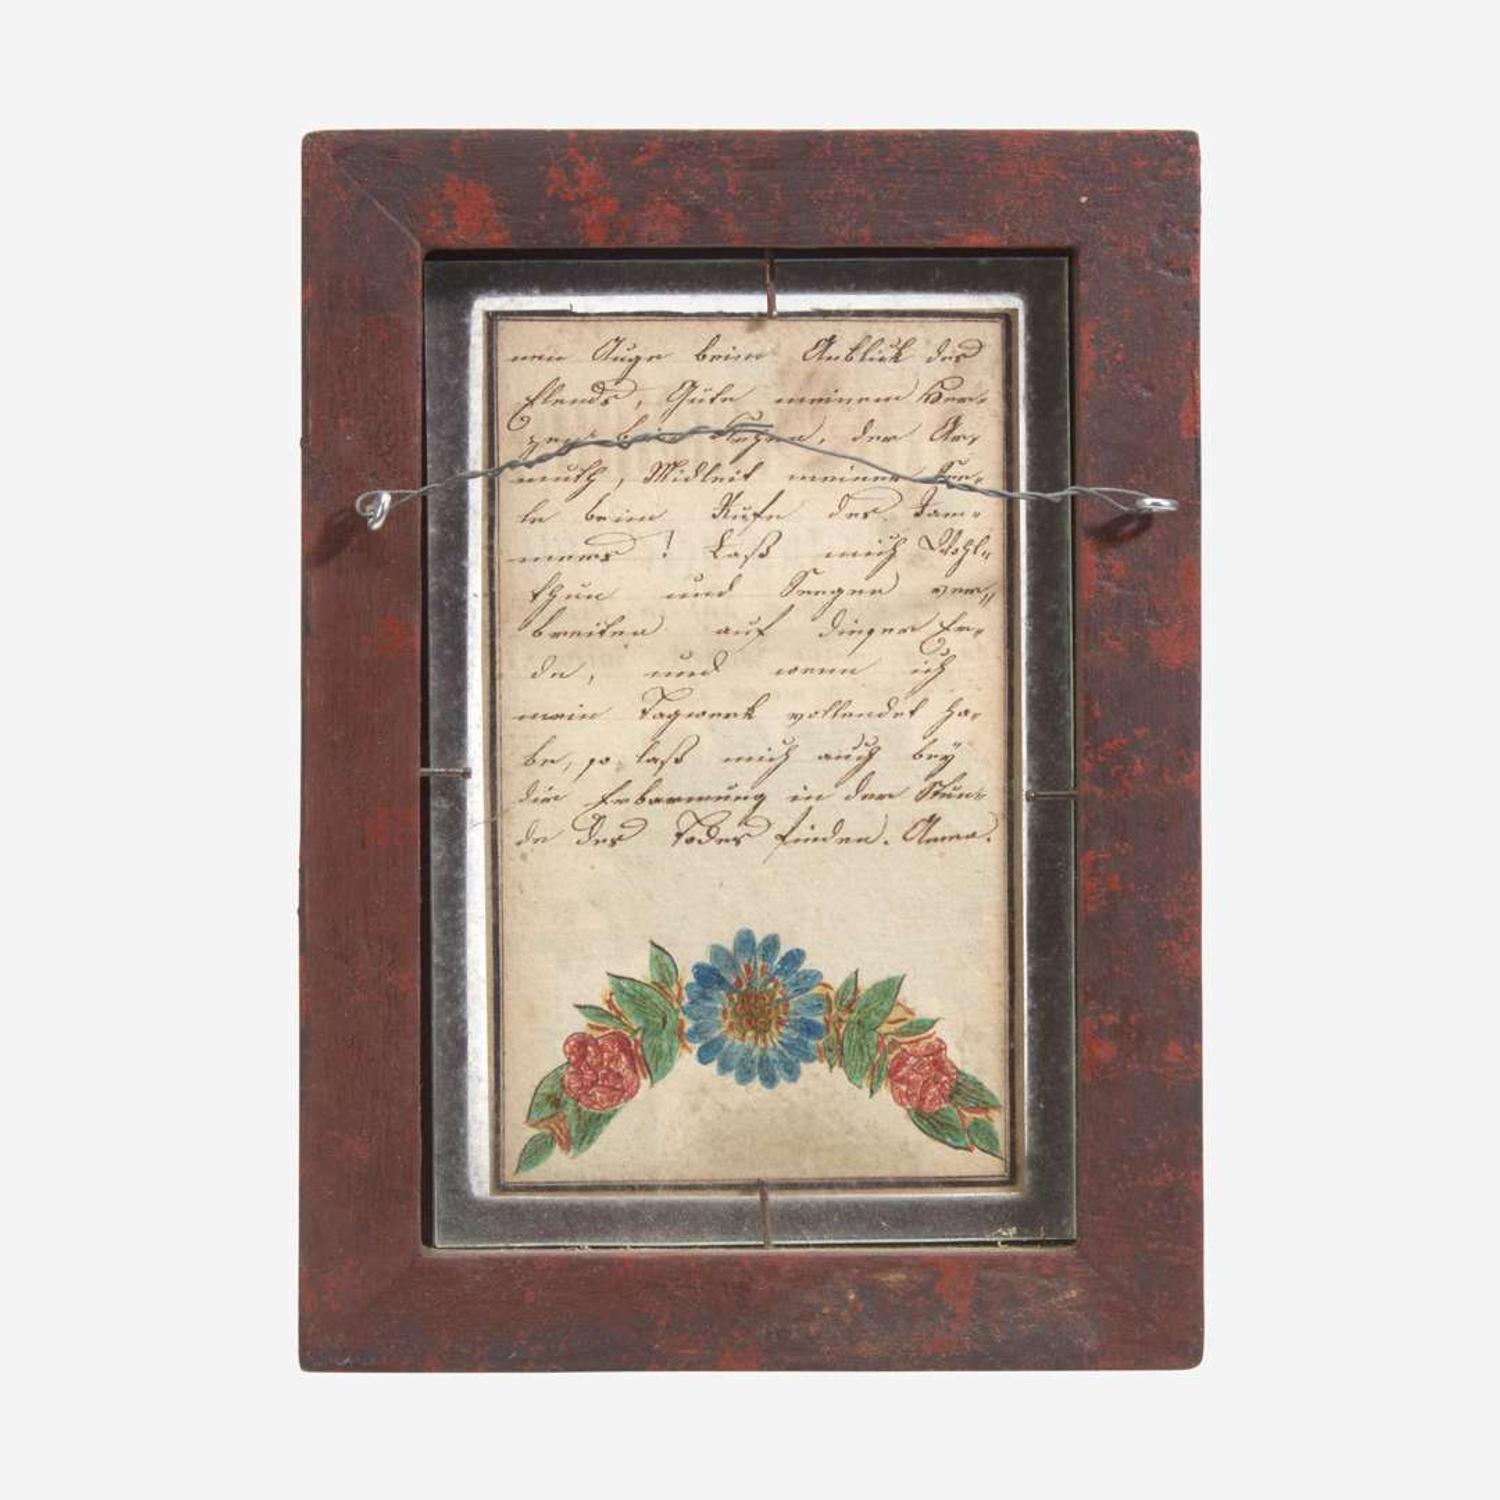 nen Auge beim Anblick des
Elends, Güte meinem Her-
zen beim Sehen, der Ar-
muth, Midleid meiner See-
le beim Rufe des Jam-
mers! Laß mich Wohl-
thun und Seegen ver-
breiten auf dieser Er-
de, und wenn ich
mein Tagwerk vollendet ha-
be, so laß mich auch bey
dir Erbarmung in der Stun-
de des Todes finden. Amen.